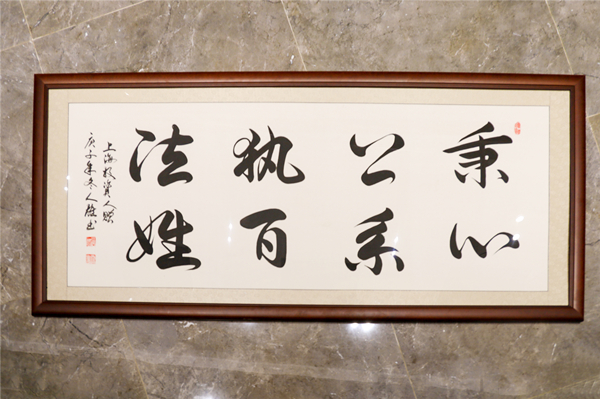 秉公执法
心系百姓
上海投資人赠
庚子年冬人书